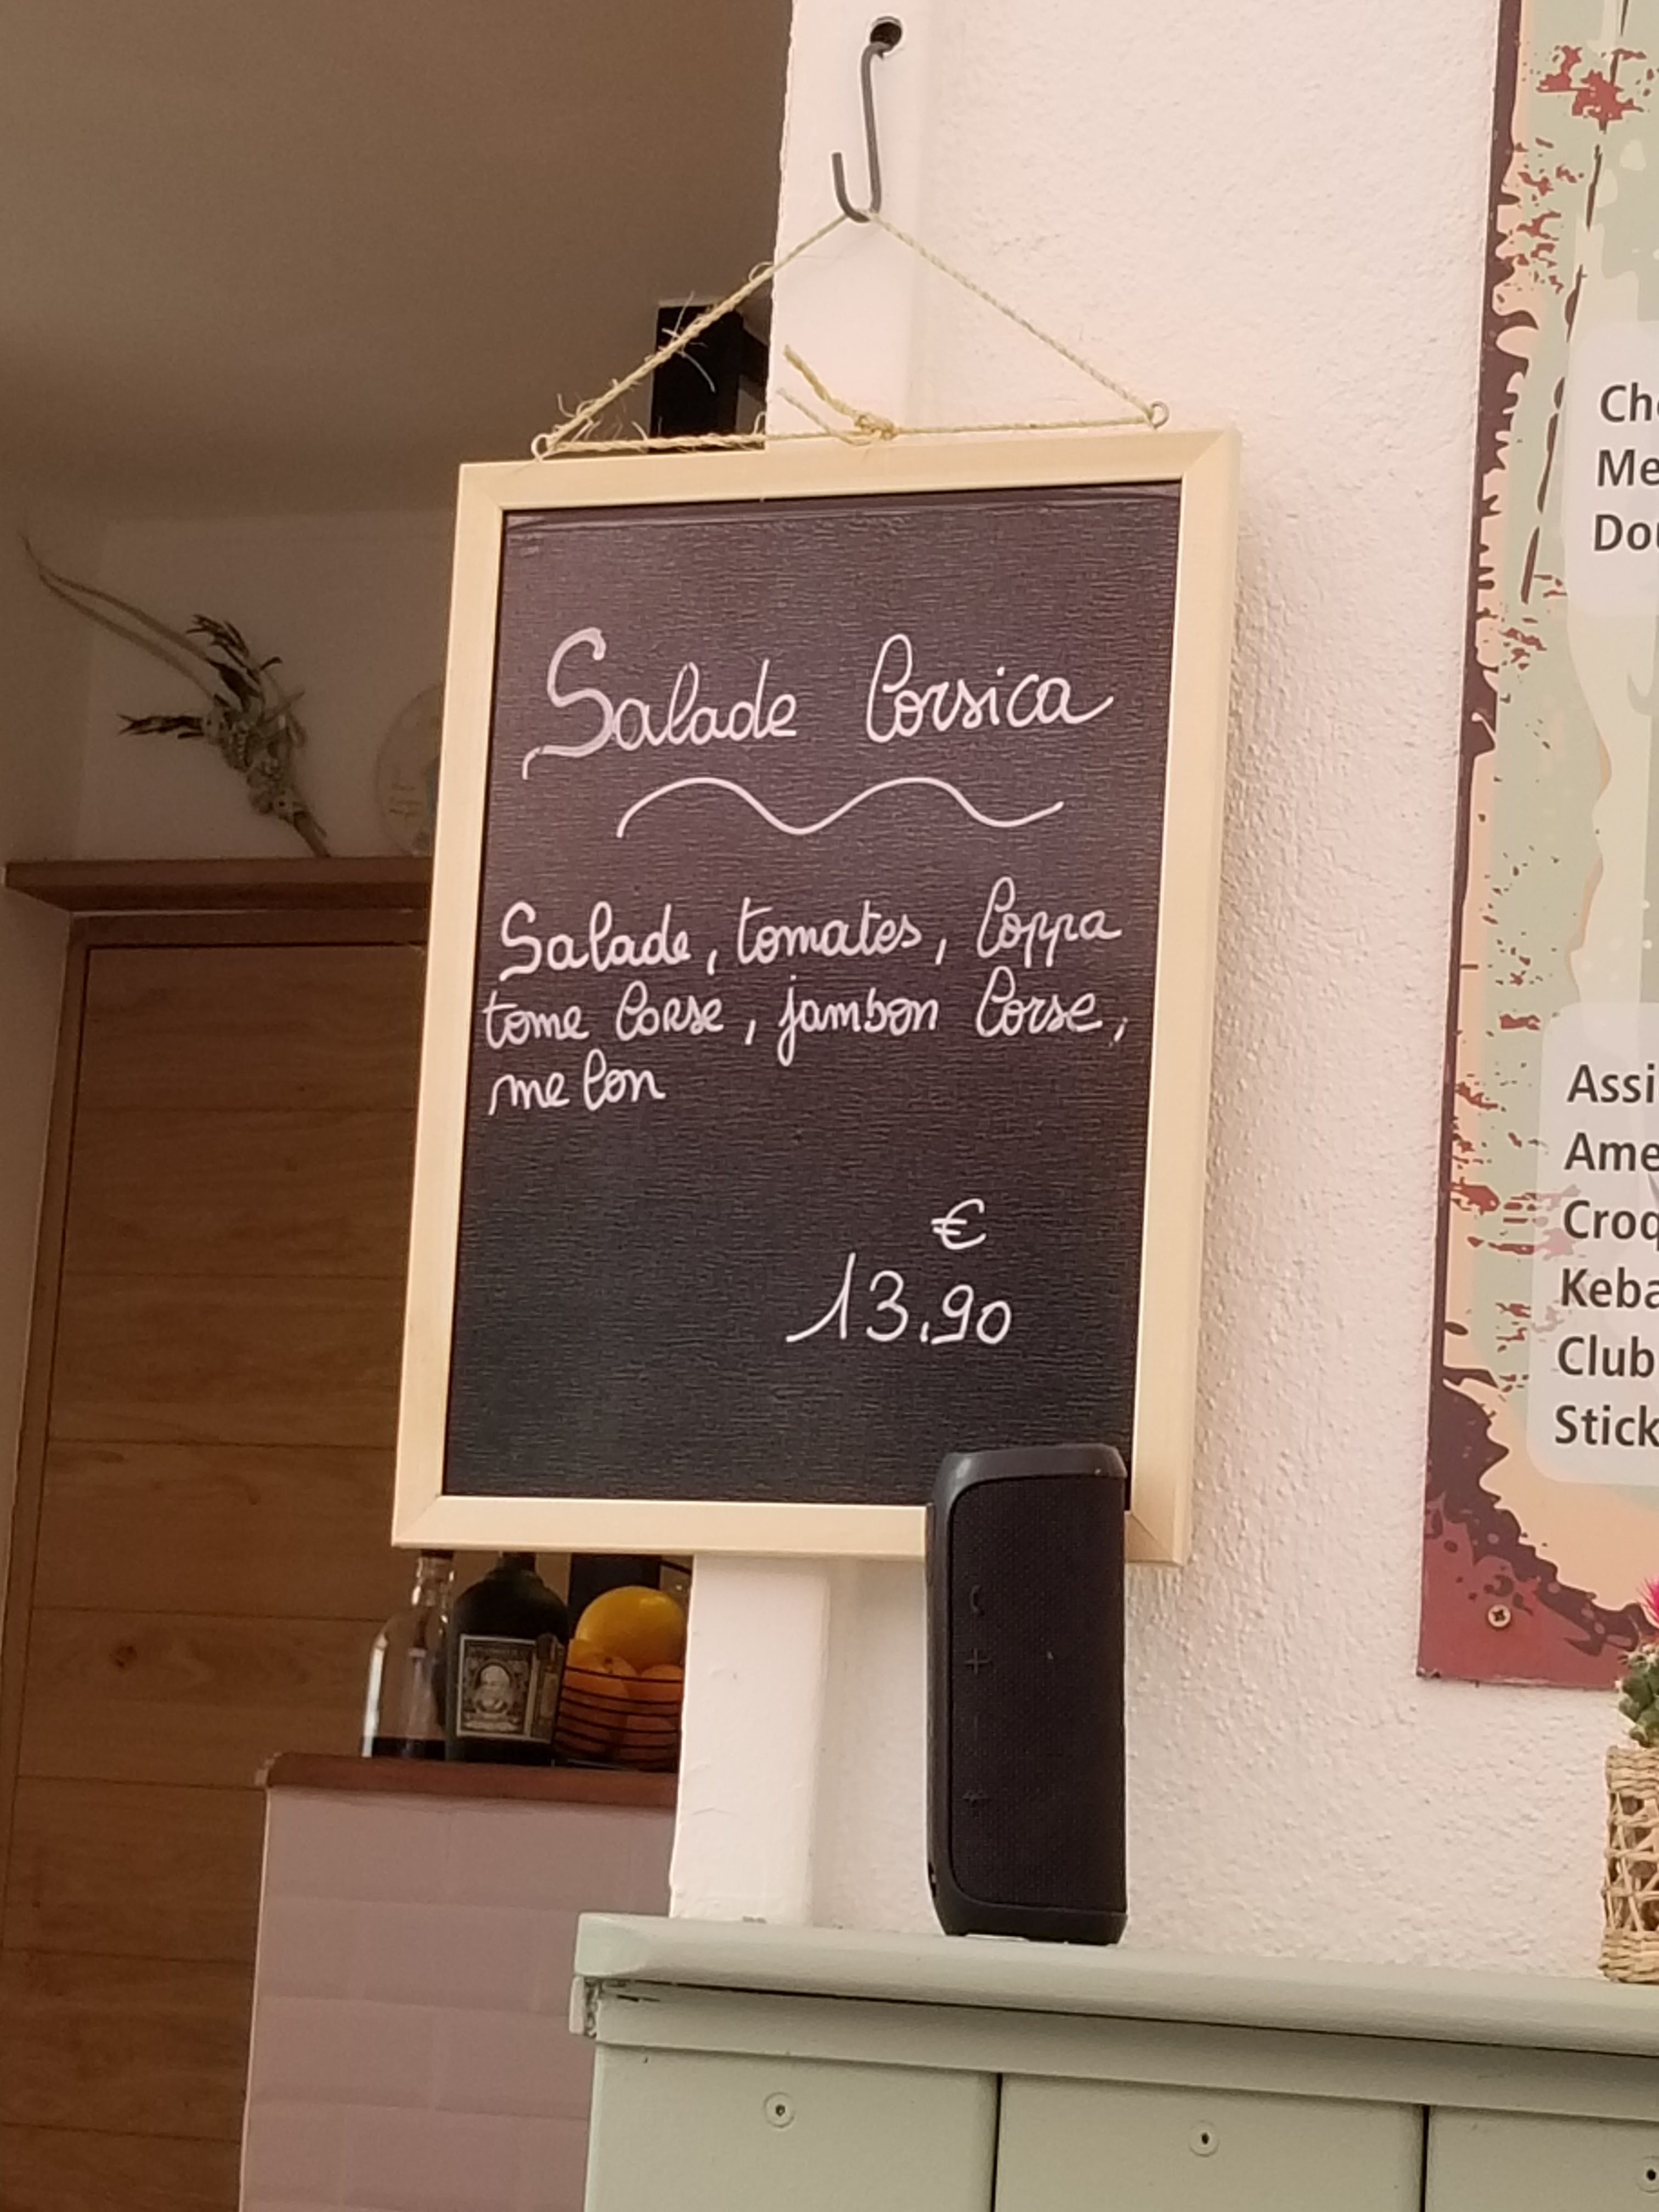 Salade Corsica
Salade, tomates, Coppa
tome Corse, jambon Corse,
melon
€
13.90
Me
Assi
Ame
Croq
Keba
Club
Stick